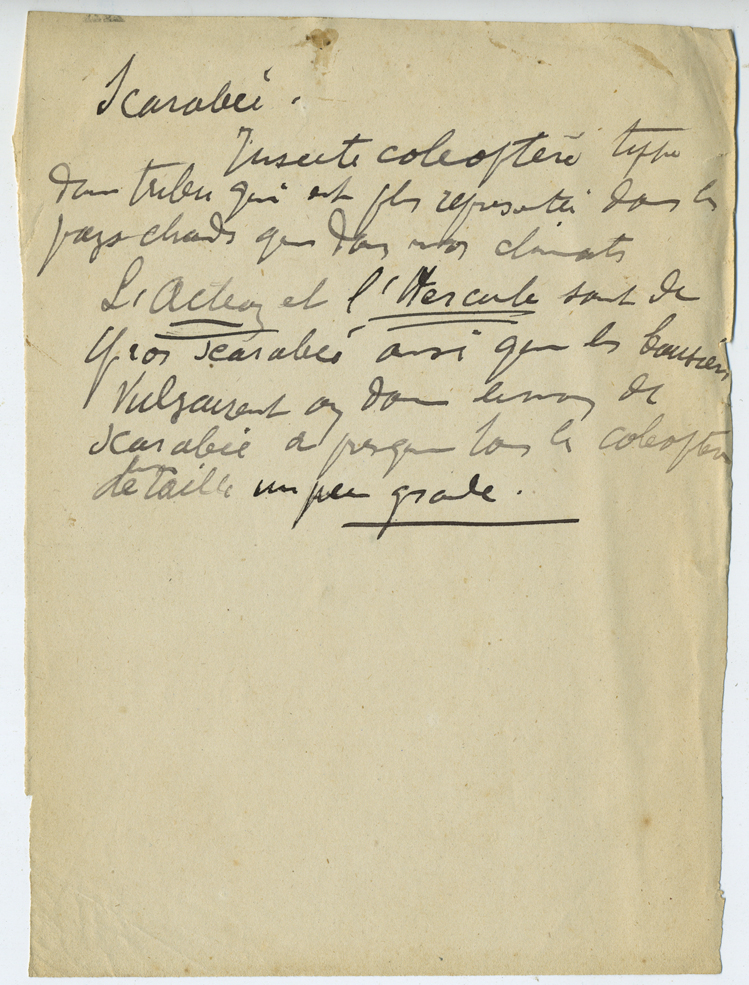 Scarabée.
Insecte coleoptère type
d'une tribu qui est plus représentée dans les
pays chauds que dans nos climats
L'Acteon et l'Hercule sont de
gros scarabée ainsi que les bousiers
Vulgairent on donne le nom de
scarabée a presque tous les coleoptères
de taille un peu grande.